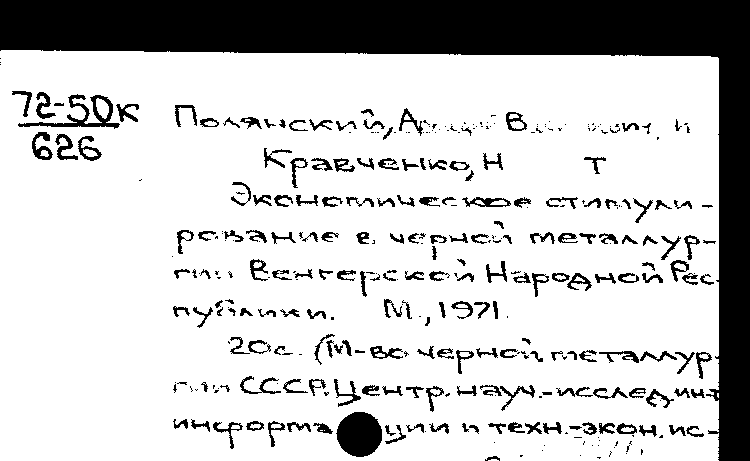 72-50к
626
Полянский, и
Кравченко, Н Т
Экономическое стимули-
рование в черной металлур-
гии Венгерской Народной Рес-
публики. М., 1971.
20с. (М-во черной металлур-
гии СССР. Центр. науч.-исслед. ин-т
информации и техн.-экон. ис-